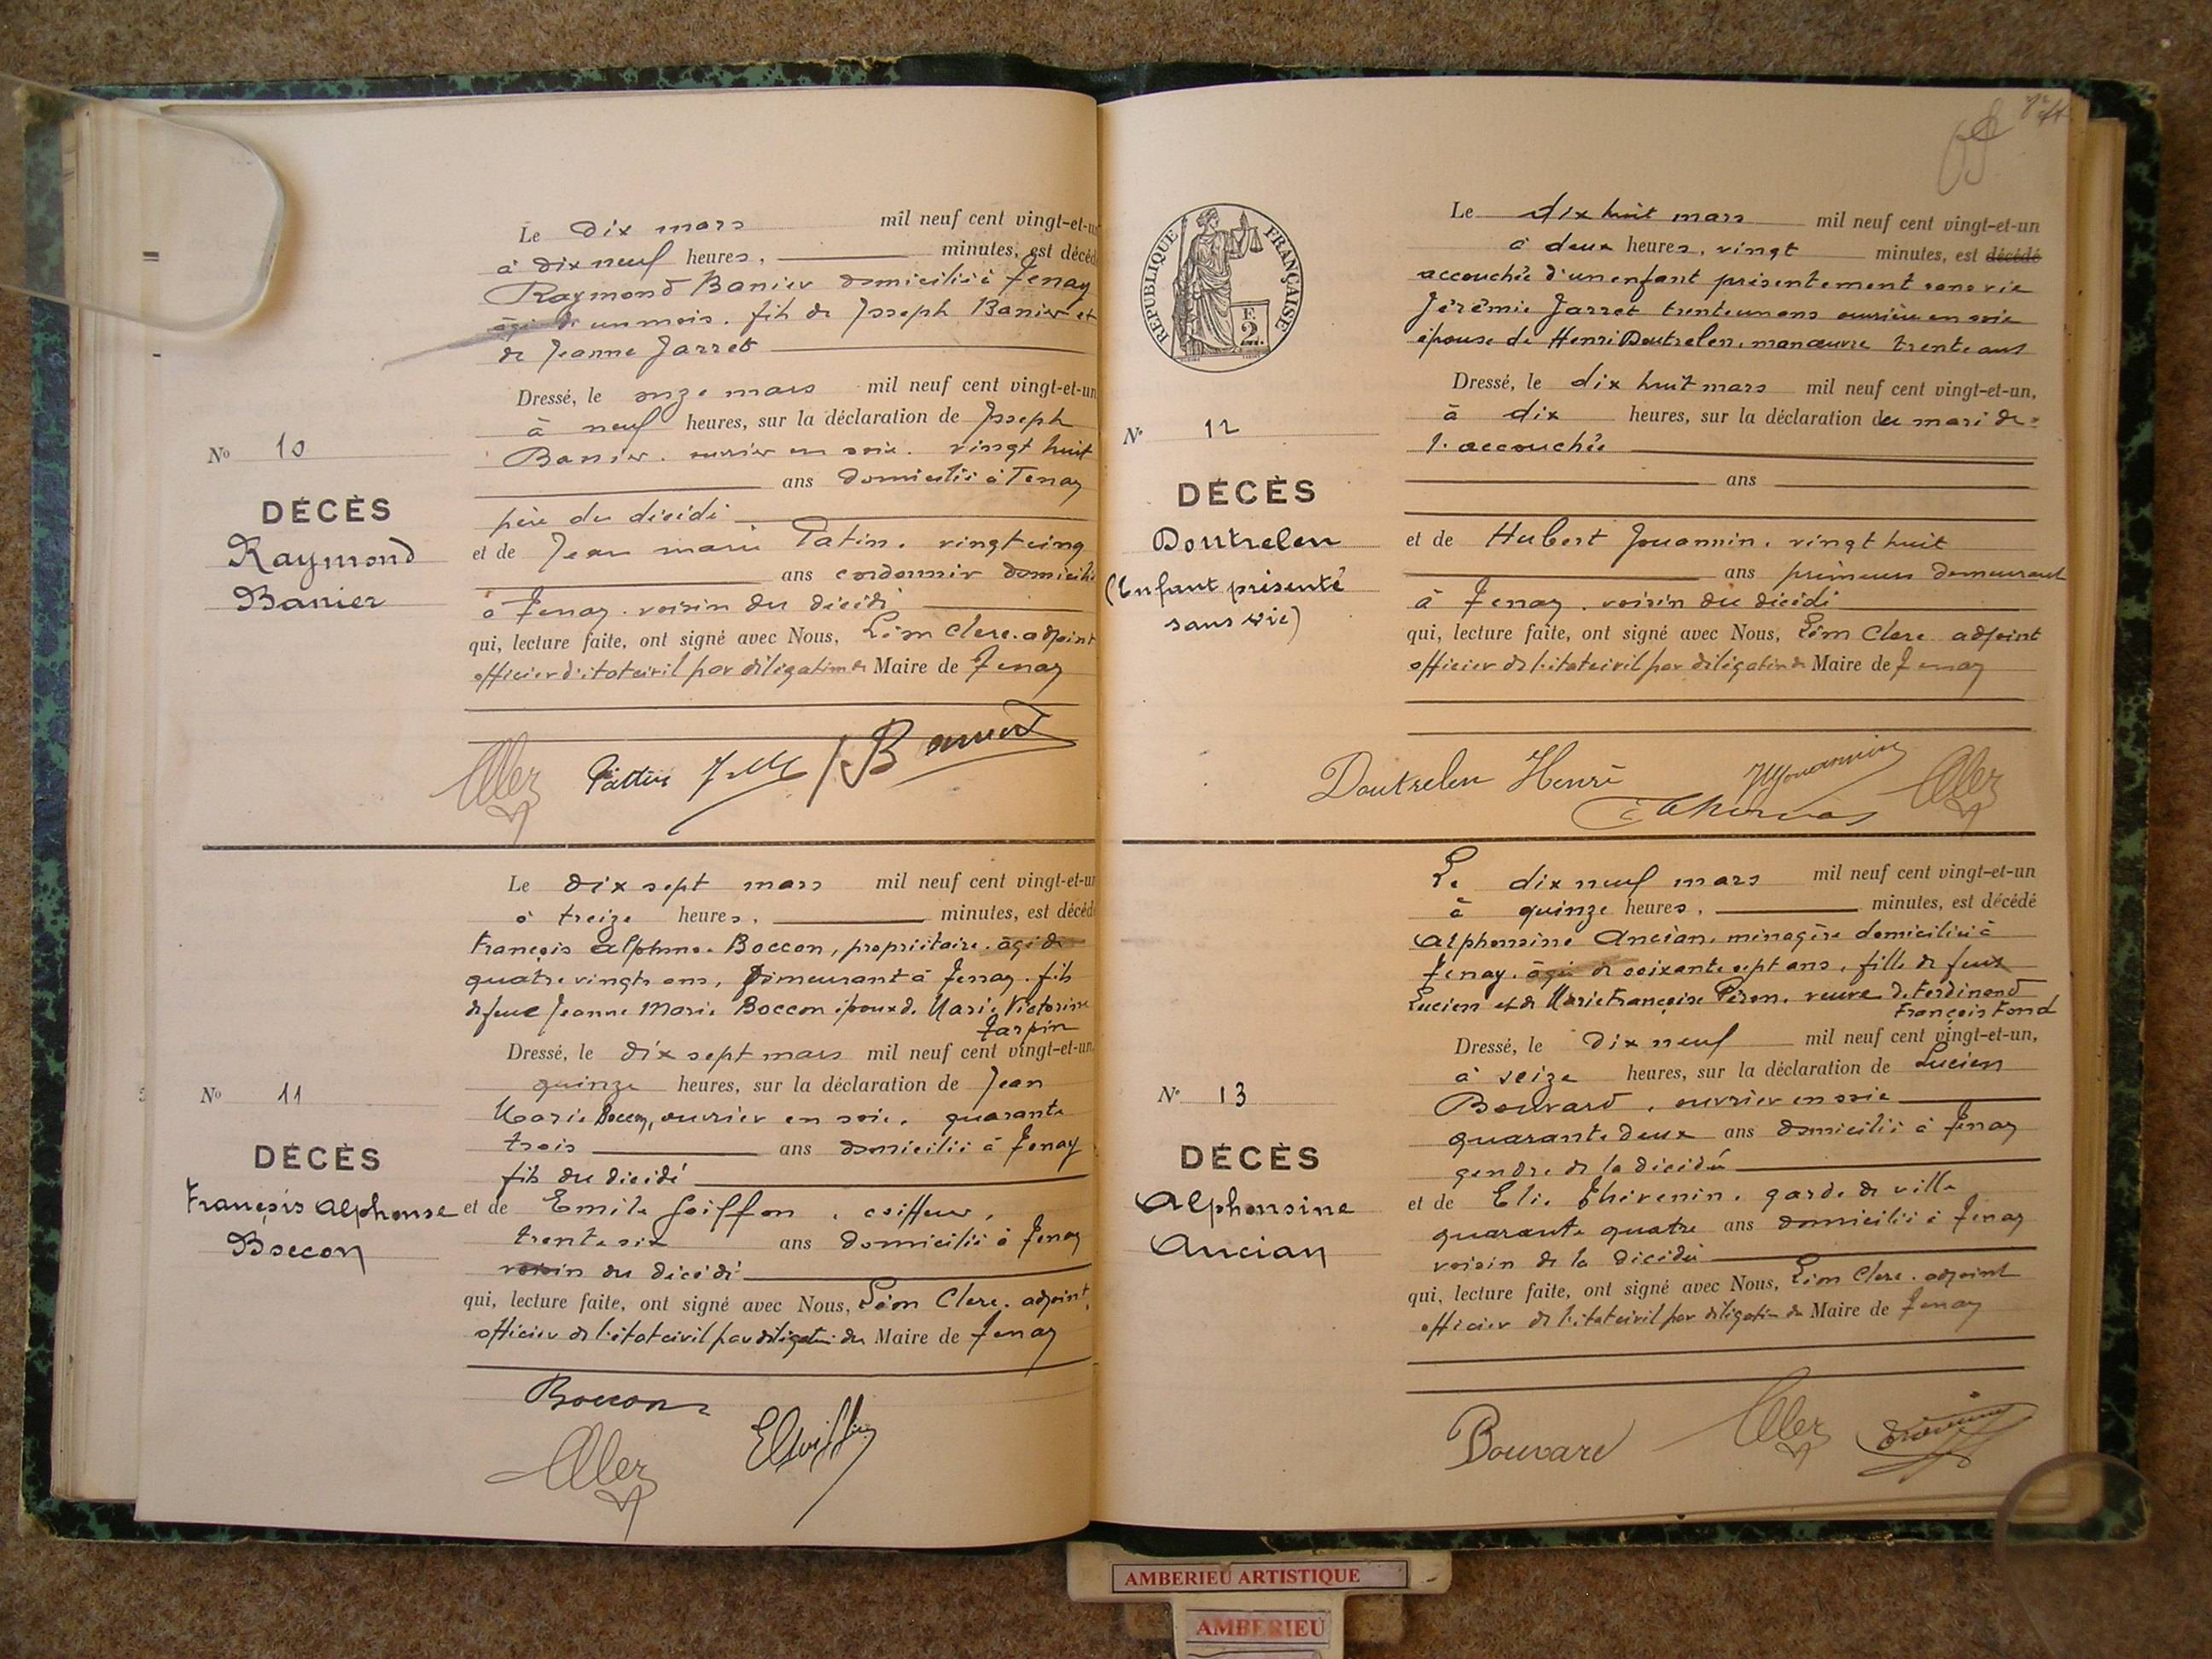 Le dix mars mil neuf cent vingt-et-un
à dix neuf heures, minutes, est décéd
Raymond Banier domicilié à Tenay
âgé de un mois. fils de Joseph Banier et
de Jeanne Jarret
Dressé, le onze mars mil neuf cent vingt-et-un
à neuf heures, sur la déclaration de Joseph
Banier. ouvrier en soie. vingt huit
ans domicilié à Tenay
père du décédé
et de Jean marie Patin. vingt cinq
ans cordonnier domicilié
à Tenay. voisin du décédé
qui, lecture faite, ont signé avec Nous, Léon Clerc. adjoint
officier d'état civil par délégation du Maire de Tenay
No 10
DÉCÈS
Raymond
Banier
Le dix sept mars mil neuf cent vingt-et-un
à treize heures, minutes, est décédé
François Alphonse Boccon, propriétaire. âgé de
quatre vingts ans, demeurant à Tenay. fils
de feue Jeanne Marie Boccon époux de Marie Victorine
Tarpin
Dressé, le dix sept mars mil neuf cent vingt-et-un,
quinze heures, sur la déclaration de Jean
Marie Boccon, ouvrier en soie. quarante
trois ans domicilié à Tenay
fils du décédé
et de Emile Goiffon, coiffeur,
trente six ans domicilié à Tenay
voisin du décédé
qui, lecture faite, ont signé avec Nous, Léon Clerc. adjoint,
officier de l'état civil par délégation du Maire de Tenay
No 11
DÉCÈS
François Alphonse
Boccon
Boccon
RÉPUBLIQUE FRANÇAISE
F.
2
Le dix huit mars mil neuf cent vingt-et-un
à deux heures, vingt minutes, est décédé
accouchée d'un enfant présentement sans vie
Jérémie Jarret trente un ans ouvrière en soie
épouse de Henri Doutrelen, manœuvre trente ans
Dressé, le dix huit mars mil neuf cent vingt-et-un,
à dix heures, sur la déclaration du mari de
l'accouchée
ans
et de Hubert Jouannin. vingt huit
ans primeurs demeurant
à Tenay. voisin du décédé
qui, lecture faite, ont signé avec Nous, Léon Clerc adjoint
officier de l'état civil par délégation du Maire de Tenay
No 12
DÉCÈS
Doutrelen
(Enfant présenté
sans vie)
Doutrelen Henri
Le dix neuf mars mil neuf cent vingt-et-un
à quinze heures, minutes, est décédé
Alphonsine Ancian, ménagère domiciliée à
Tenay. âgée de soixante sept ans, fille de feux
Lucien et de Marie Françoise Péron. veuve de Ferdinand
François Fond
Dressé, le dix neuf mil neuf cent vingt-et-un,
à seize heures, sur la déclaration de Lucien
Bouvard, ouvrier en soie
quarante deux ans domicilié à Tenay
gendre de la décédée
et de Elie Thévenin. garde de ville
quarante quatre ans domicilié à Tenay
voisin de la décédée
qui, lecture faite, ont signé avec Nous, Léon Clerc. adjoint
officier de l'état civil par délégation du Maire de Tenay
No 13
DÉCÈS
Alphonsine
Ancian
Bouvard
AMBERIEU ARTISTIQUE
AMBERIEU